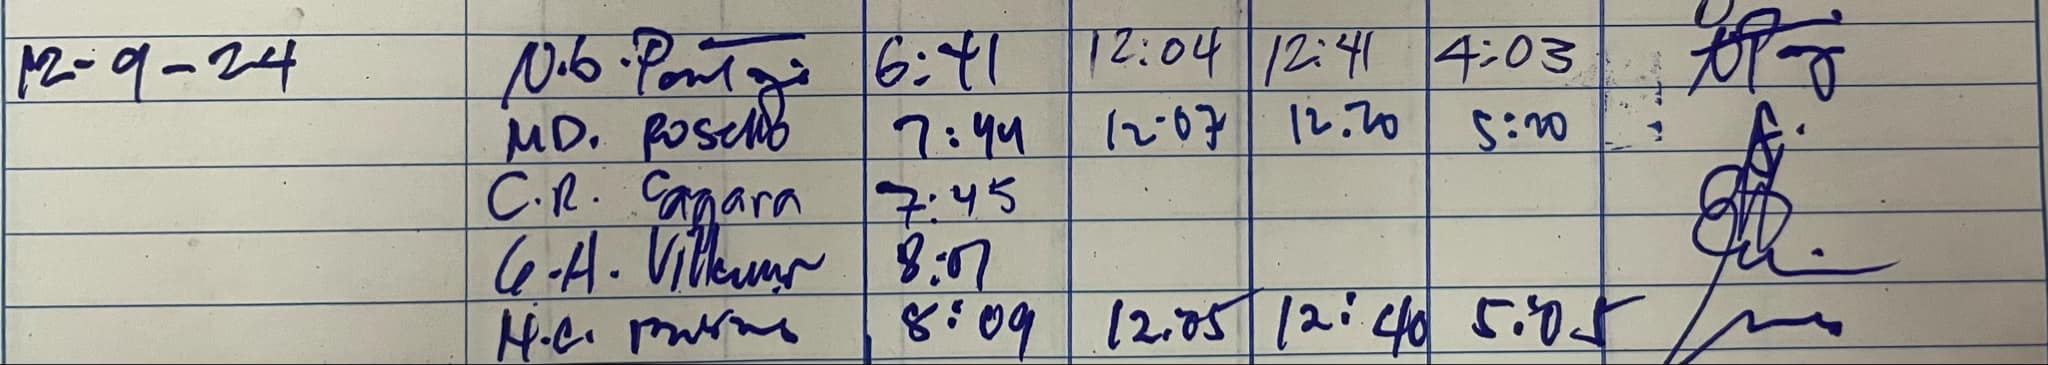 12-9-24 N.G. 6:41 12:04 12:41 4:03
MD. Rosello 7:44 12:07 12:20 5:20
C.R. Cagara 7:45
G.H. Villamor 8:07
H.C. 8:09 12:05 12:40 5:05